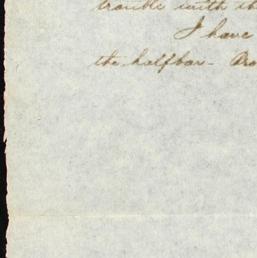 trouble with th
I have
the halfbar - Bro